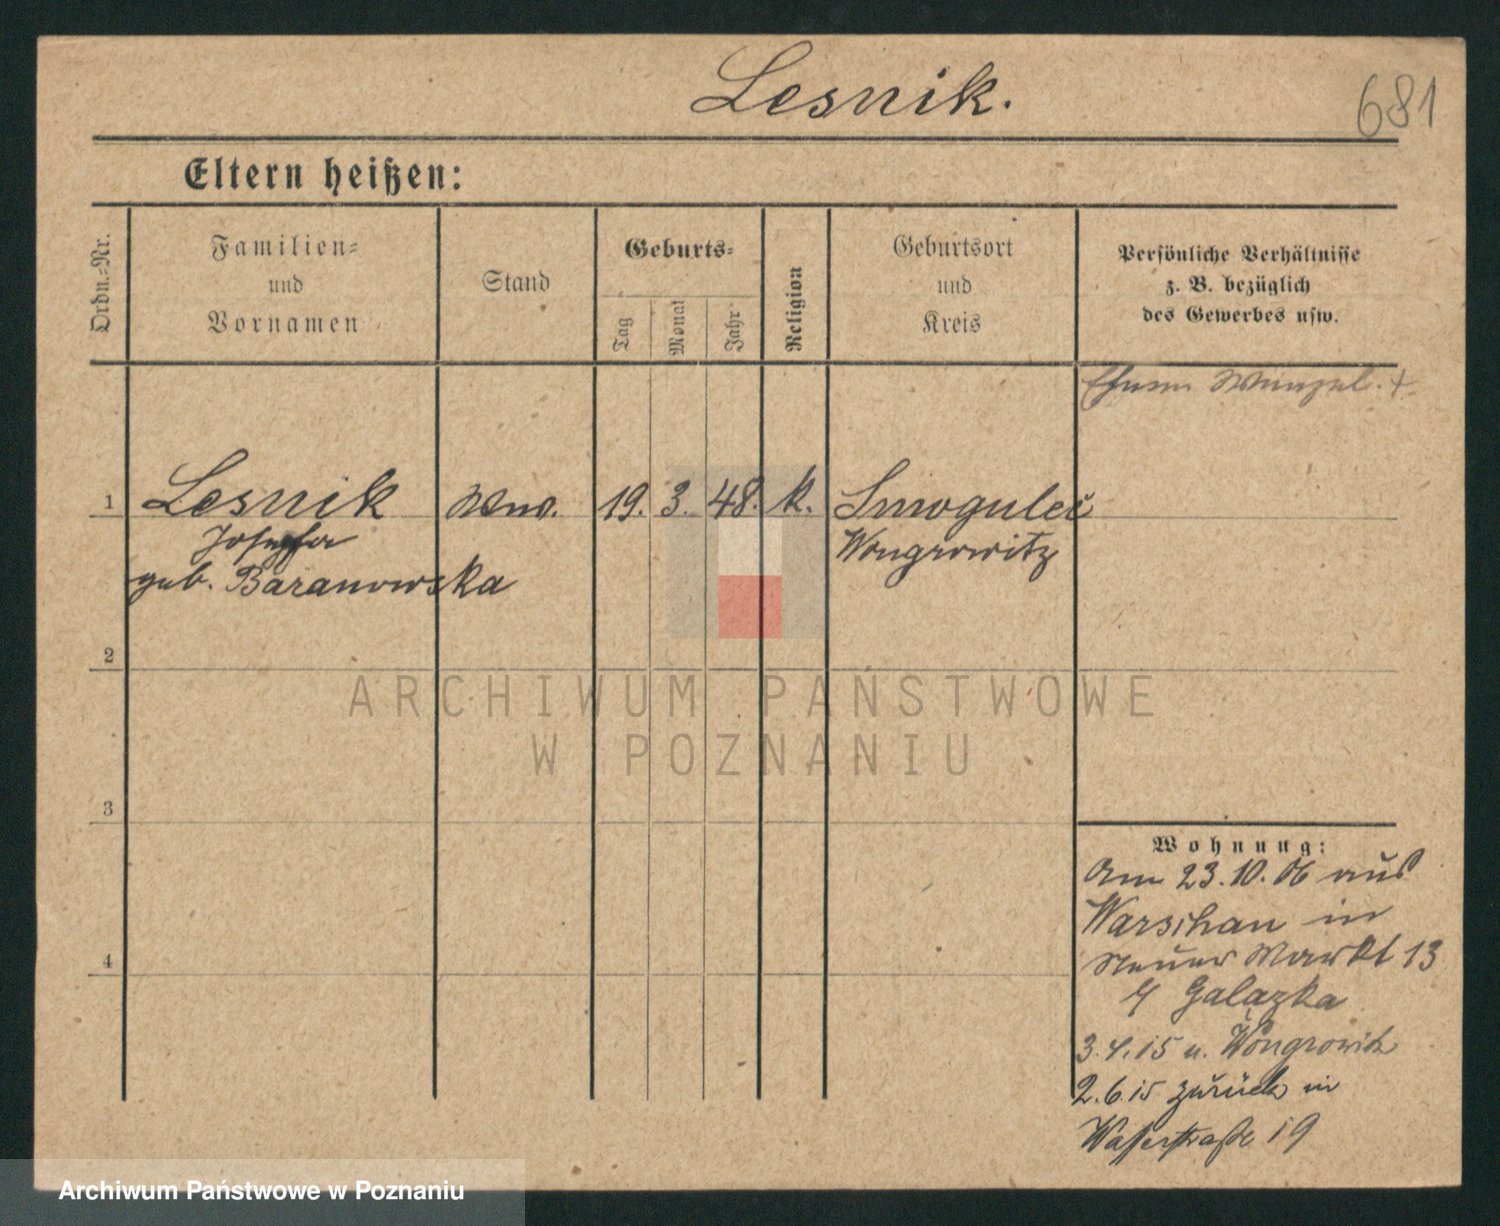 Lesnik.
681
Eltern heißen:
Ordn.-Nr.
Familien-
und
Vornamen
Stand
Geburts-
Tag
Monat
Jahr
Religion
Geburtsort
und
Kreis
Persönliche Verhältnisse
z. B. bezüglich
des Gewerbes usw.
1
Lesnik
Josepha
geb. Baranowska
Wwe.
19. 3. 48. k.
Smogulec
Wongrowitz
2
3
4
Wohnung:
Am 23.10.06 aus
Warschau in
Neuer Markt 13
Galązka
3.4.15 n. Wongrowitz
2.6.15 zurück in
Wasserstraße 19
ARCHIWUM PAŃSTWOWE
W POZNANIU
Archiwum Państwowe w Poznaniu